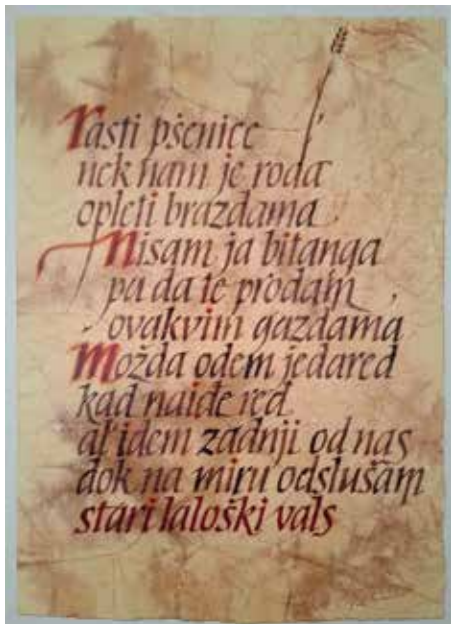 rasti pšenice
nek nam je roda
opleti brazdama
Nisam ja bitanga
pa da te prodam
ovakvim gazdama
Možda odem jedared
kad naiđe red
al'idem zadnji od nas
dok na miru odslušam
stari laloški vals